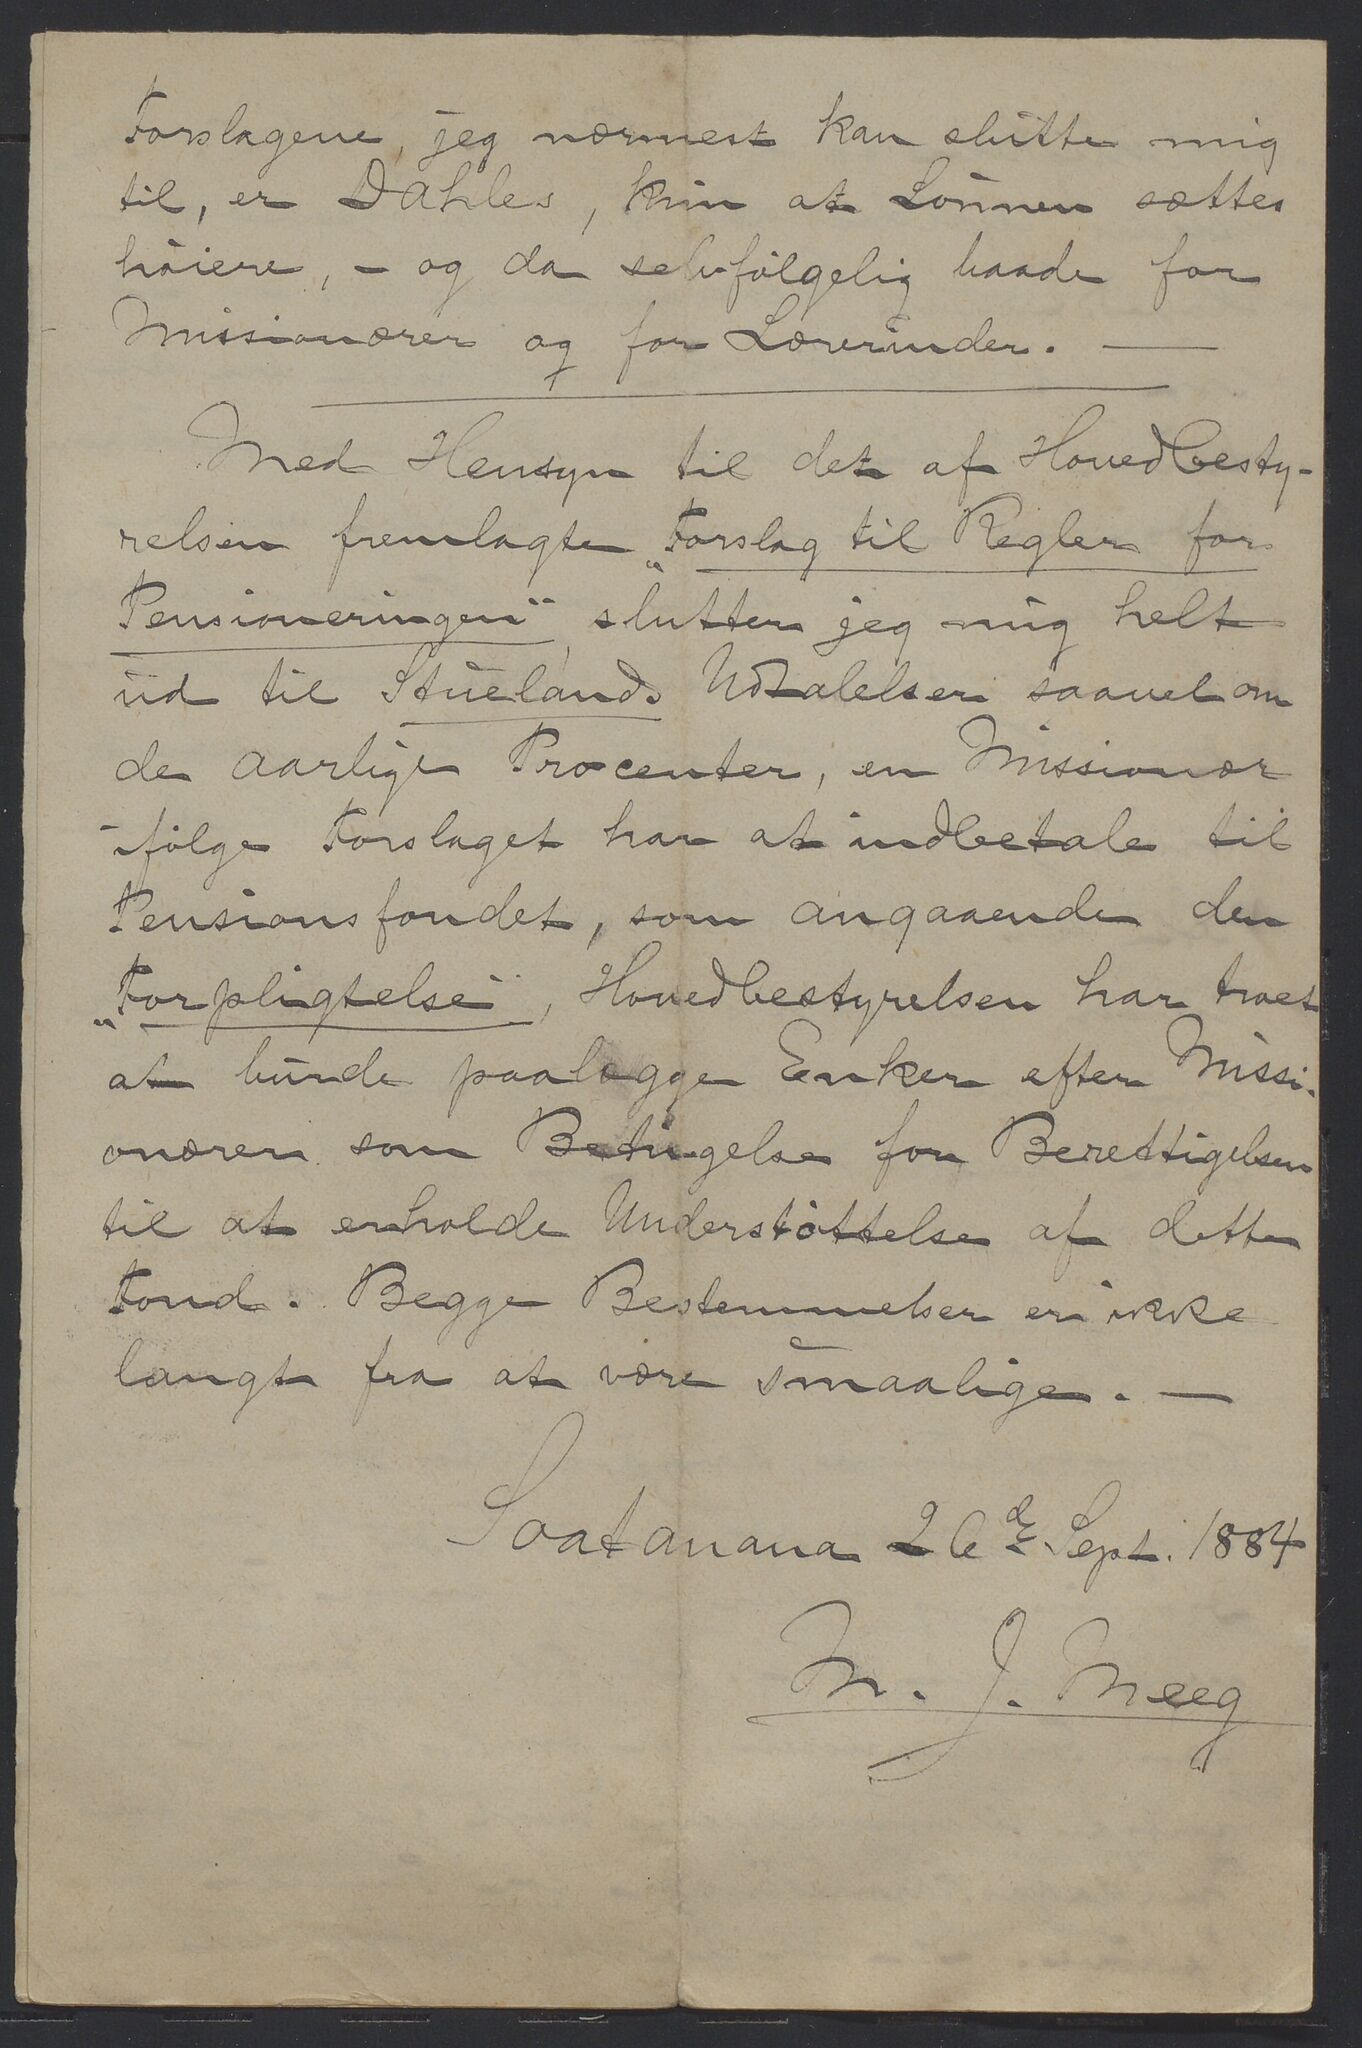 Forslagene, jeg nærmest kan slutte mig
til, er Dahles, kun at Lønnen sættes
høiere, – og da selvfølgelig baade for
Missionærer og for Lærerinder. —
Med Hensyn til det af Hovedbesty-
relsen fremlagte „Forslag til Regler for
Pensioneringen", slutter jeg mig helt
ud til Stuelands Udtalelser saavel om
de aarlige Procenter, en Missionær
ifølge Forslaget har at indbetale til
Pensionsfondet, som angaaende den
„Forpligtelse", Hovedbestyrelsen har troet
at burde paalægge Enker efter Missi-
onærer som Betingelse for Berettigelsen
til at erholde Understøttelse af dette
Fond. Begge Bestemmelser er ikke
langt fra at være smaalige. —
Soatanana 26de Sept. 1884
M. J. Meeg